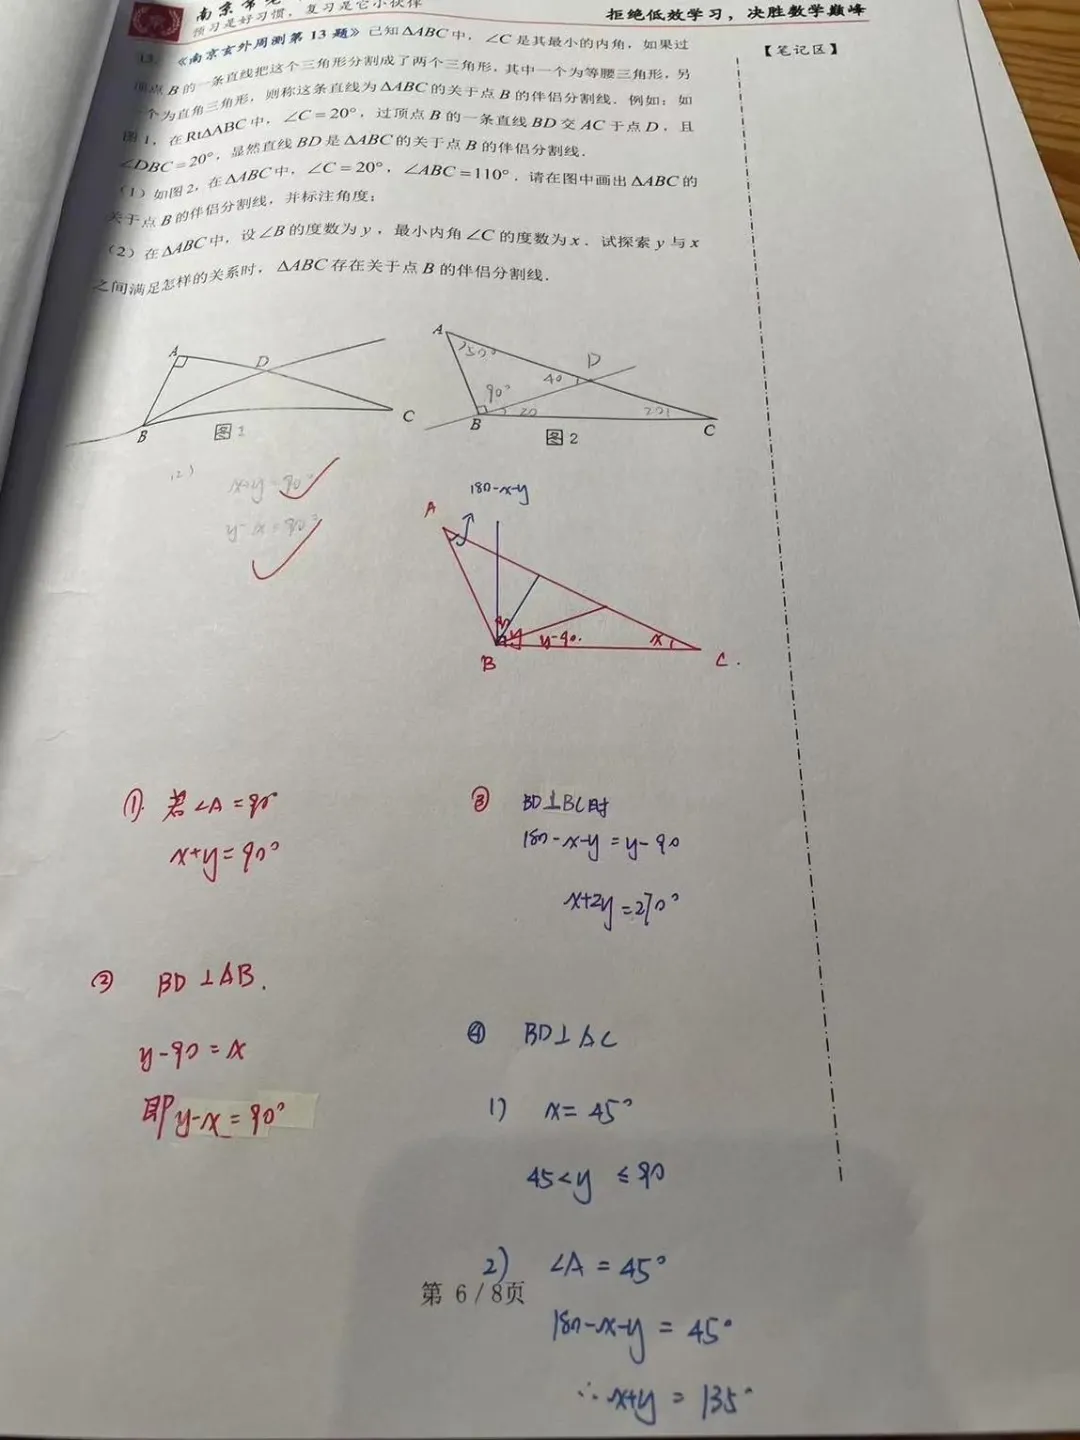 预习是好习惯，复习是它小伙伴
拒绝低效学习，决胜数学巅峰
【笔记区】
13. 《南京玄外周测第13题》已知△ABC中，∠C是其最小的内角，如果过
顶点B的一条直线把这个三角形分割成了两个三角形，其中一个为等腰三角形，另
一个为直角三角形，则称这条直线为△ABC的关于点B的伴侣分割线．例如：如
图1，在Rt△ABC中，∠C=20°，过顶点B的一条直线BD交AC于点D，且
∠DBC=20°，显然直线BD是△ABC的关于点B的伴侣分割线．
（1）如图2，在△ABC中，∠C=20°，∠ABC=110°．请在图中画出△ABC的
关于点B的伴侣分割线，并标注角度；
（2）在△ABC中，设∠B的度数为y，最小内角∠C的度数为x．试探索y与x
之间满足怎样的关系时，△ABC存在关于点B的伴侣分割线．
A
D
B
C
图1
A
50°
D
40
90°
20
20
B
C
图2
(2)
x+y=90°
y-x=90°
180-x-y
A
y
y-90.
x
B
C.
① 若∠A=90°
x+y=90°
② BD⊥AB.
y-90=x
即y-x=90°
③ BD⊥BC时
180-x-y=y-90
x+2y=270°
④ BD⊥AC
1) x=45°
45<y≤90
2) ∠A=45°
第 6 / 8页
180-x-y=45°
∴x+y=135°